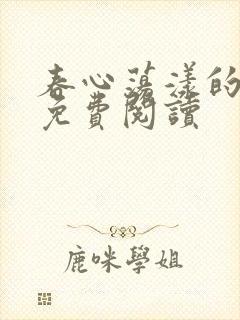 春心蕩漾的
免費閱讀
鹿咪學姐